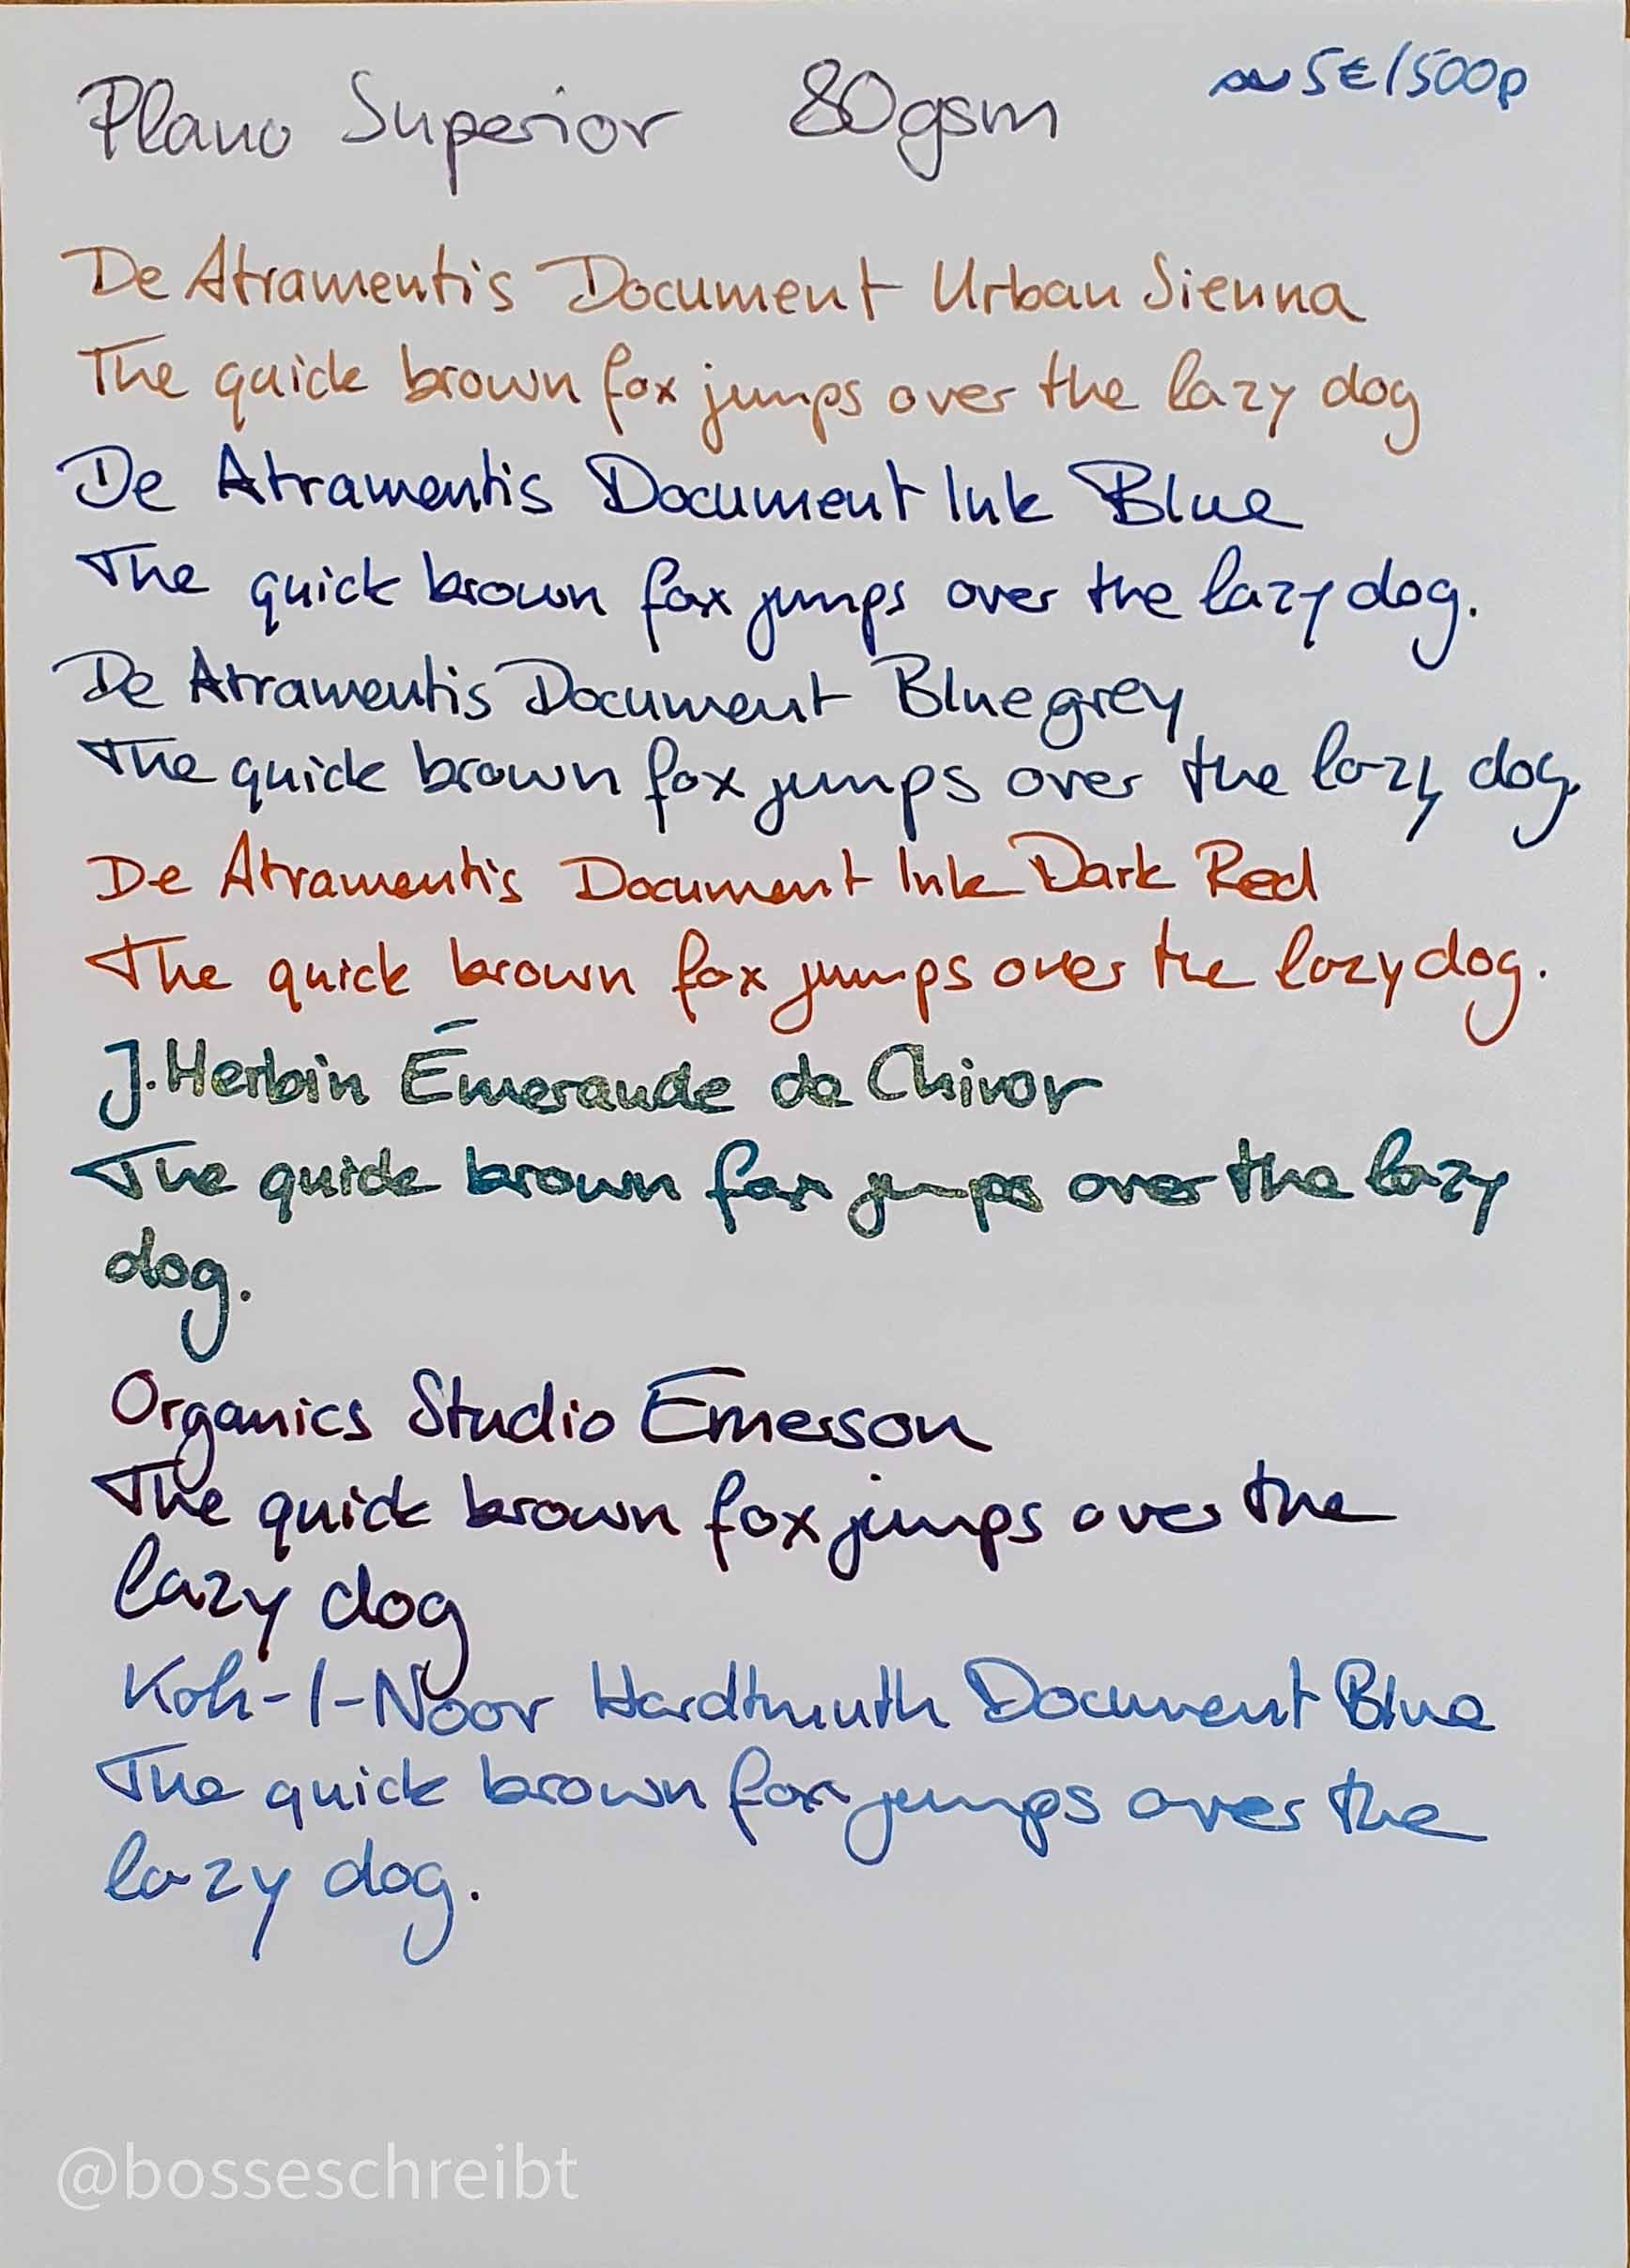 Plano Superior 80gsm ~ 5€/500p
De Atramentis Document Urban Sienna
The quick brown fox jumps over the lazy dog
De Atramentis Document Ink Blue
The quick brown fox jumps over the lazy dog.
De Atramentis Document Bluegrey
The quick brown fox jumps over the lazy dog.
De Atramentis Document Ink Dark Red
The quick brown fox jumps over the lazy dog.
J.Herbin Émeraude de Chivor
The quick brown fox jumps over the lazy
dog.
Organics Studio Emerson
The quick brown fox jumps over the
lazy dog
Koh-I-Noor Hardtmuth Document Blue
The quick brown fox jumps over the
lazy dog.
@bosseschreibt